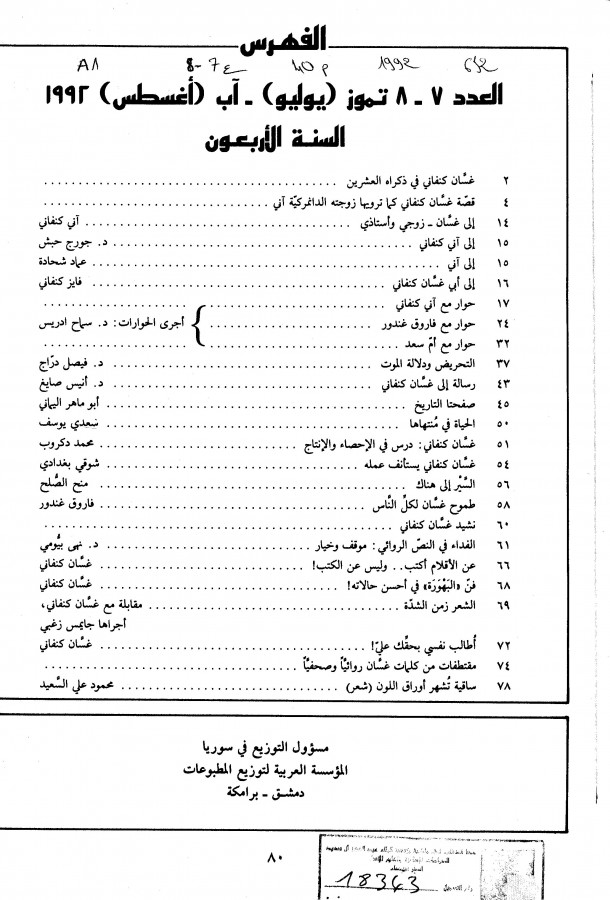 الفهرس
A8 8-7ع 40م 1992 632
العدد ٧ ـ ٨ تموز (يوليو) ـ آب (أغسطس) ١٩٩٢
السنة الأربعون
غسّان كنفاني في ذكراه العشرين ٢
قصّة غسّان كنفاني كما ترويها زوجته الدانمركيّة آني ٤
إلى غسّان ـ زوجي وأستاذي آني كنفاني ١٤
إلى آني كنفاني د. جورج حبش ١٥
إلى آني عماد شحادة ١٥
إلى أبي غسّان كنفاني فايز كنفاني ١٦
حوار مع آني كنفاني ١٧
حوار مع فاروق غندور أجرى الحوارات: د. سماح ادريس ٢٤
حوار مع أمّ سعد ٣٢
التحريض ودلالة الموت د. فيصل درّاج ٣٧
رسالة إلى غسّان كنفاني د. أنيس صايغ ٤٣
صفحتا التاريخ أبو ماهر اليماني ٤٥
الحياة في مُنتهاها سعدي يوسف ٥٠
غسّان كنفاني: درس في الإحصاء والإنتاج محمد دكروب ٥١
غسّان كنفاني يستأنف عمله شوقي بغدادي ٥٤
السَّيْر إلى هناك منح الصُّلح ٥٦
طموح غسّان لكلِّ النَّاس فاروق غندور ٥٨
نشيد غسّان كنفاني ٦٠
الفداء في النصّ الروائي: موقف وخيار د. نهى بيُّومي ٦١
عن الأقلام أكتب.. وليس عن الكتب! غسَّان كنفاني ٦٦
فنّ «البَهْوَرَة» في أحسن حالاته! غسَّان كنفاني ٦٨
الشعر زمن الشدّة مقابلة مع غسَّان كنفاني، ٦٩
أجراها جايمس زغبي
أُطالب نفسي بحقِّك عليّ! غسَّان كنفاني ٧٢
مقتطفات من كلمات غسَّان روائيّاً وصحفيّاً ٧٤
ساقية تُشهر أوراق اللون (شعر) محمود علي السَّعيد ٧٨
مسؤول التوزيع في سوريا
المؤسسة العربية لتوزيع المطبوعات
دمشق ـ برامكة
٨٠
18343